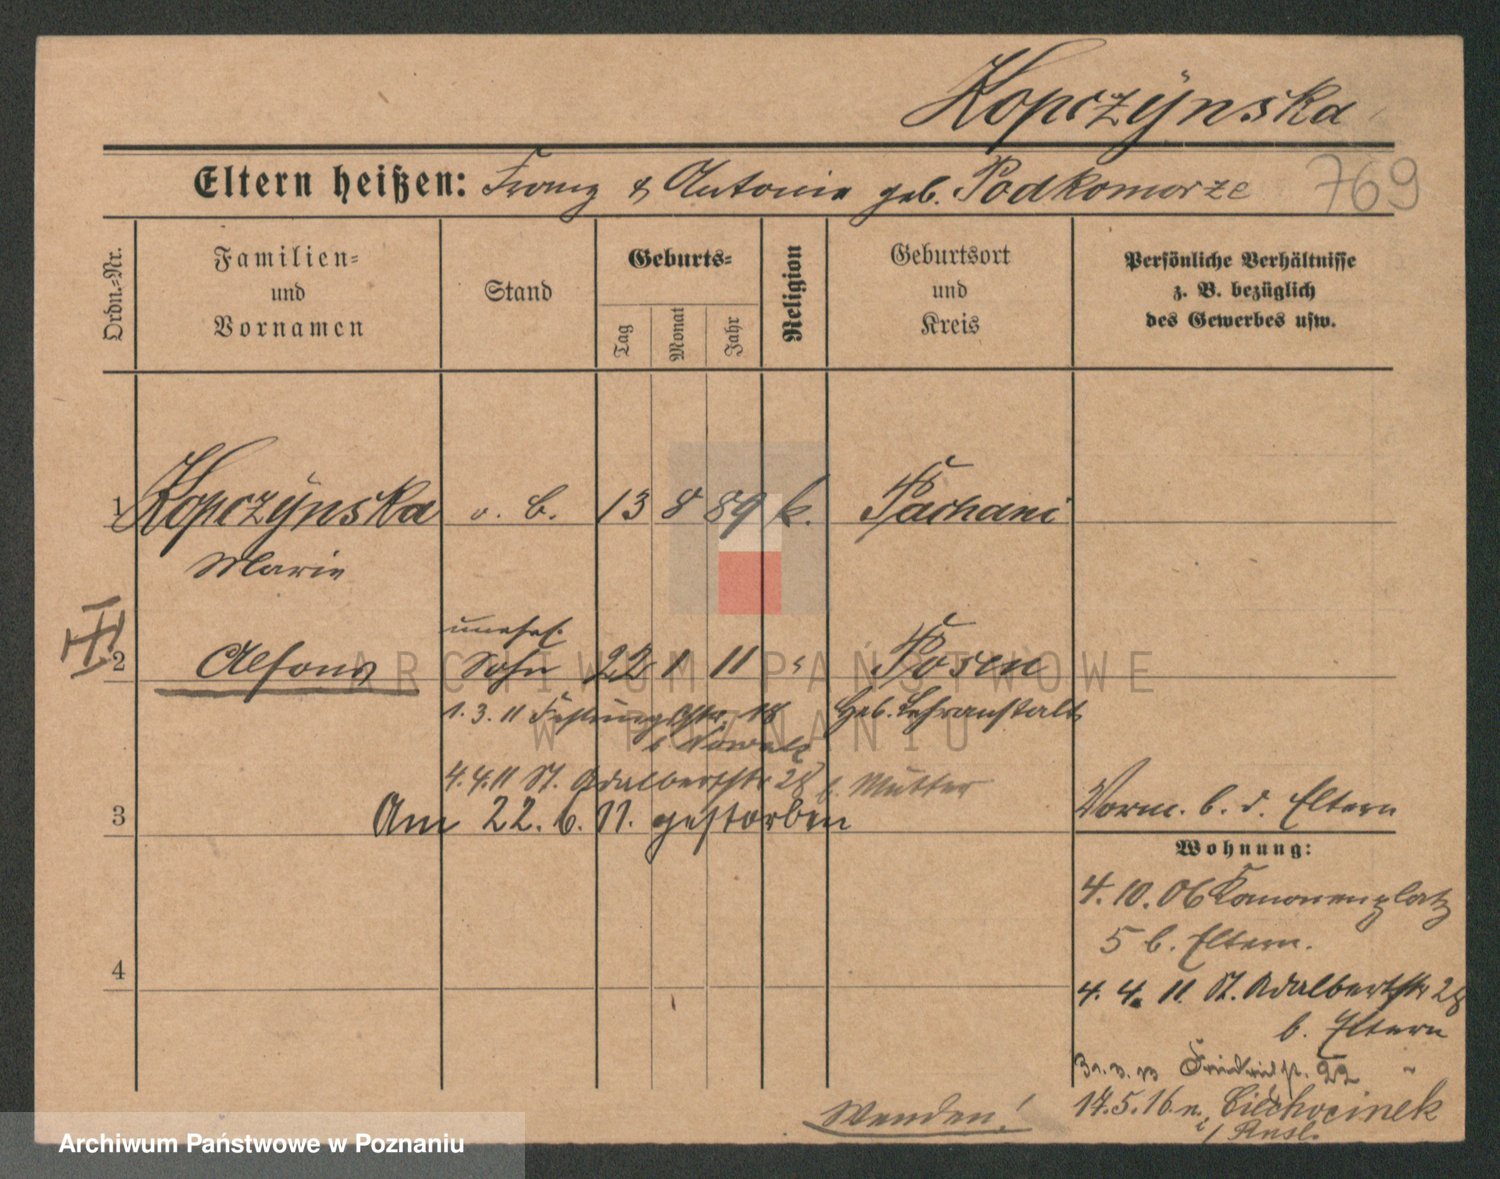 Kopczÿnska
Eltern heißen: Franz & Antonie geb. Podkomorze
769
Ordn.-Nr.
Familien-
und
Vornamen
Stand
Geburts-
Tag
Monat
Jahr
Religion
Geburtsort
und
Kreis
Persönliche Verhältnisse
z. B. bezüglich
des Gewerbes usw.
1 Kopczÿnska o. B. 13 8 89 k. Pachani
Marie
unehel.
2 Alfons Sohn 22 1 11 " Posen
1. 3. 11 Festungsstr. 18 Heb. Lehranstalt
b. Nowak
4. 4. 11 St. Adalbertstr 28 b. Mutter
3 Am 22. 6. 11. gestorben
Vorm. b. d. Eltern
Wohnung:
4. 10. 06 Kanonenplatz
5 b. Eltern.
4
4. 4. 11. St. Adalbertstr 28
b. Eltern
22 "
17. 5. 16 n. Ciechocinek
i/Rusl.
Wenden!
ARCHIWUM PAŃSTWOWE
W POZNANIU
Archiwum Państwowe w Poznaniu